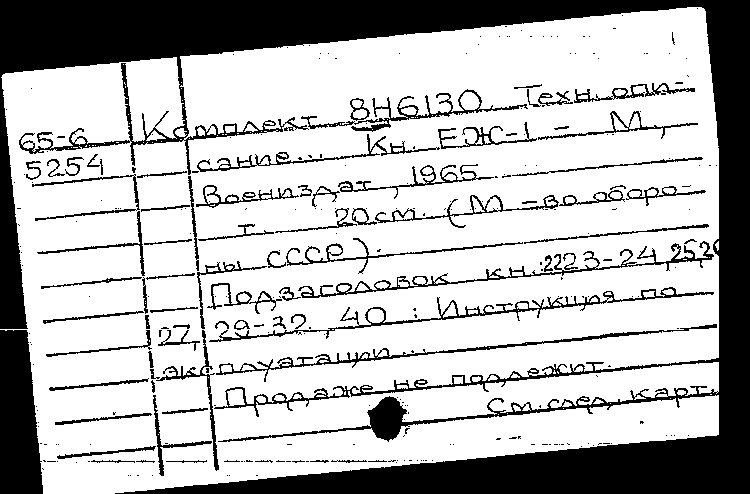 1
65-6 Комплект 8Н6130. Техн. опи-
5254 сание... Кн. ЕЖ-1 - М.,
Воениздат, 1965
т. 20 см. (М-во оборо-
ны СССР).
Подзаголовок кн.: 22, 23-24, 25, 26
27, 29-32, 40 : Инструкция по
эксплуатации...
Продаже не подлежит.
См. след. карт.